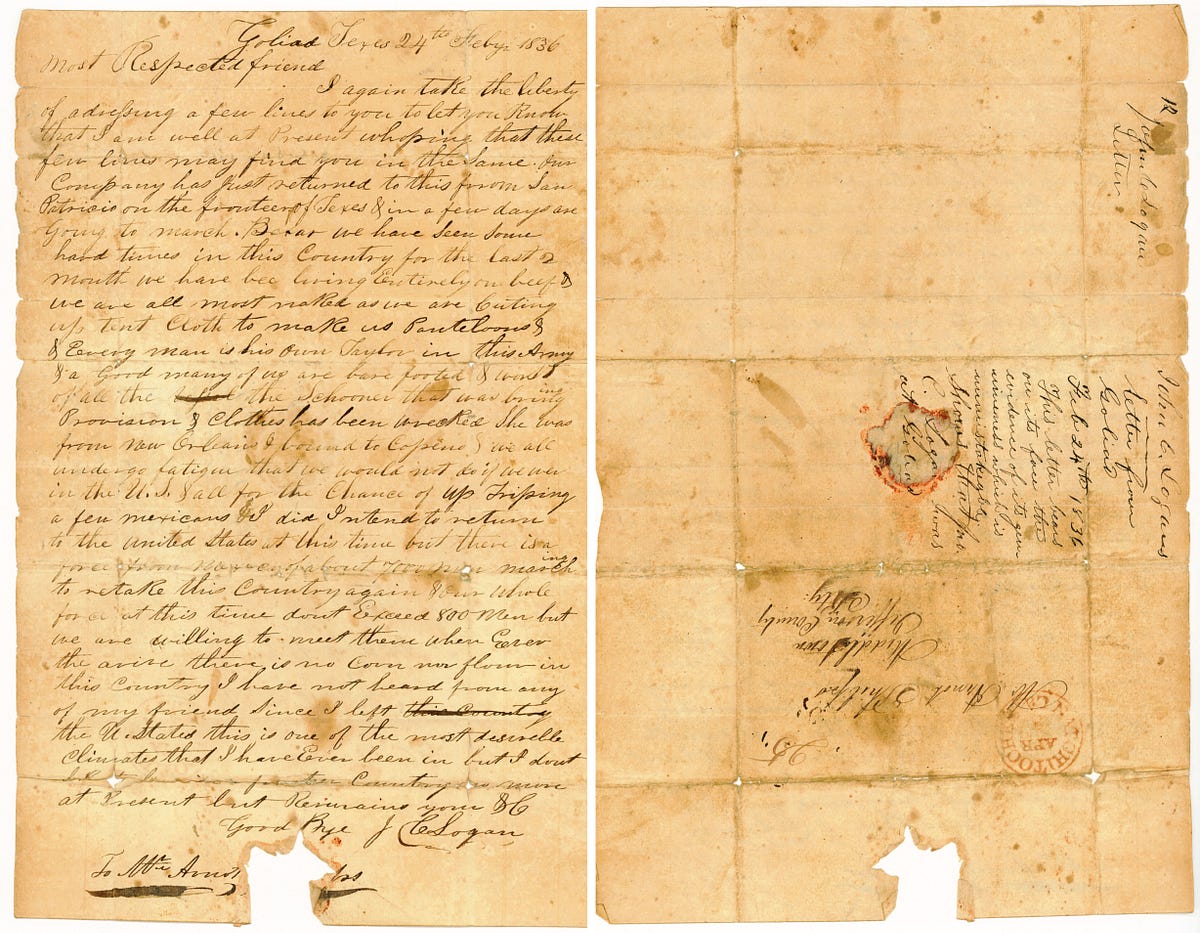 Goliad Texes 24th Feby 1836
Most Respected friend
I again take the liberty
of adressing a few lines to you to let you Know
that I am well at Present whoping that these
few lines may find you in the Same. Our
Company has Just returned to this from San
Patricio on the fronteer of Texes & in a few days are
Going to march. Bexar we have seen Some
hard times in this Country for the last 2
month we have bee living Entirely on beef &
we are all most naked as we are Cuting
up tent Cloth to make us Panteloons &
& Eevery man is his own Taylor in this Army
& a Good many of us are bare footed & worst
of all the the Schooner that was bringing
Provision & Clothes has been wrecked She was
from New Orleans & bound to Copeno & we all
undergo fatigue that we would not do if we wer
in the U.S. & all for the Chance of up Triping
a few mexicans & I did I intend to return
to the united States at this time but there is a
force from of about 7000 men marching
to retake this Country again & our whole
force at this time dont Exceed 800 Men but
we are willing to meet them when Ever
the arive there is no Corn nor flour in
this Country I have not heard from any
of my friend Since I left this Country
the U. States this is one of the most desirelle
Climates that I have Ever been in but I dont
Country no more
at Present but Remains your &C
Good Bye J C Logan
To Mr Arnol
12
John C Logan
Letter
John C. Logans
letter from
Goliad
Feb 24th 1836
This letter bears
on its face the
evidence of its gen
uineness which is
unmistakeably
Shows that Jno.
C. Logan was
at Goliad
25
Mr. Arnol Philips
Middletown
Jefferson County
Kty.
APR